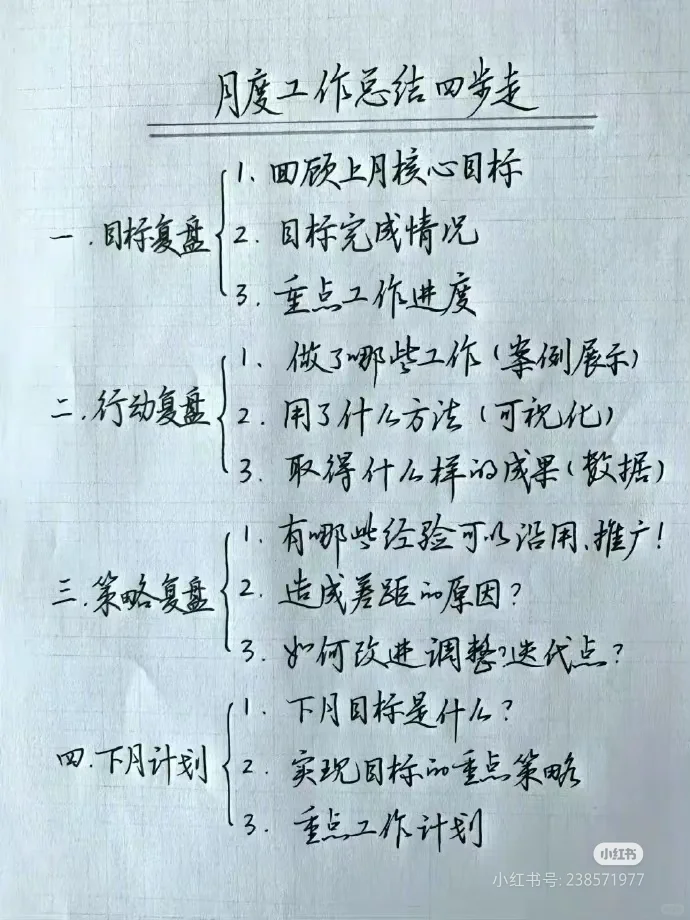 月度工作总结四步走
一.目标复盘
1.回顾上月核心目标
2.目标完成情况
3.重点工作进度
二.行动复盘
1.做了哪些工作(案例展示)
2.用了什么方法(可视化)
3.取得什么样的成果(数据)
三.策略复盘
1.有哪些经验可以沿用、推广!
2.造成差距的原因?
3.如何改进调整?迭代点?
四.下月计划
1.下月目标是什么?
2.实现目标的重点策略
3.重点工作计划
小红书
小红书号: 238571977